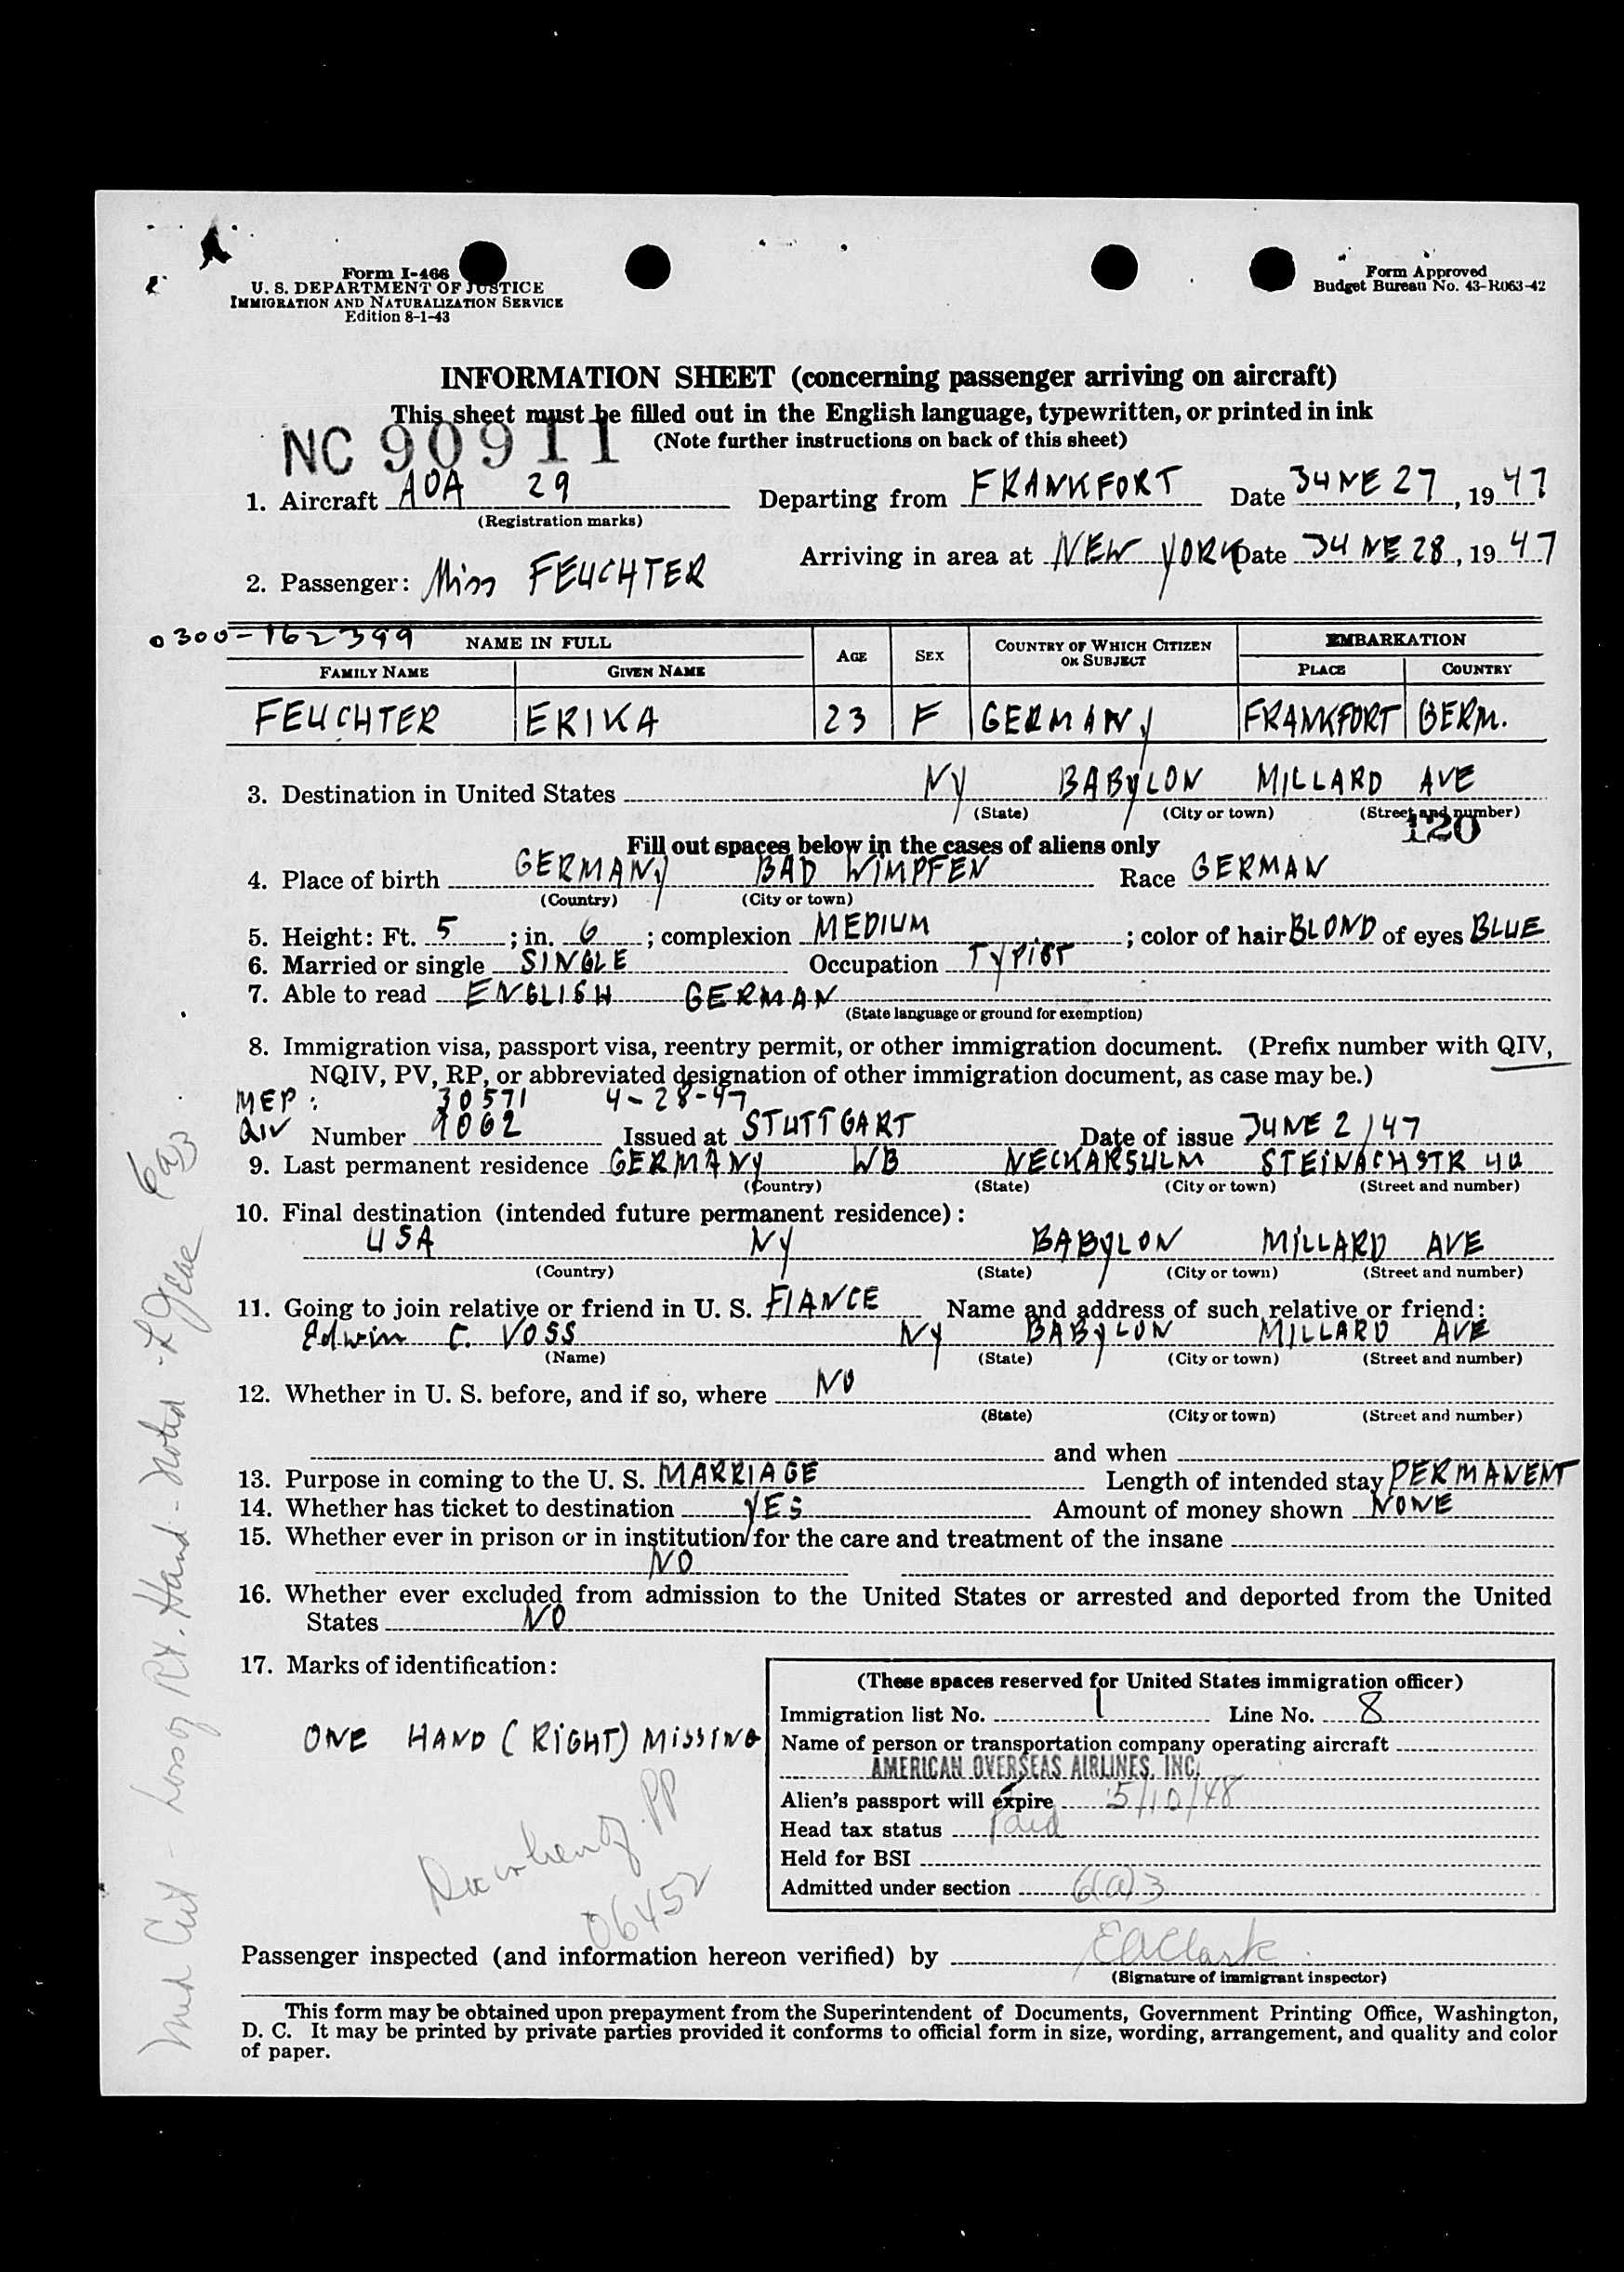 Form I-466
U. S. DEPARTMENT OF JUSTICE
IMMIGRATION AND NATURALIZATION SERVICE
Edition 8-1-43
Form Approved
Budget Bureau No. 43-R063-42
INFORMATION SHEET (concerning passenger arriving on aircraft)
This sheet must be filled out in the English language, typewritten, or printed in ink
(Note further instructions on back of this sheet)
NC 90911
1. Aircraft AOA 29 Departing from FRANKFORT Date JUNE 27, 1947
(Registration marks)
Arriving in area at NEW YORK Date JUNE 28, 1947
2. Passenger: Miss FEUCHTER
0300-162399
NAME IN FULL AGE SEX COUNTRY OF WHICH CITIZEN OR SUBJECT EMBARKATION
FAMILY NAME GIVEN NAME PLACE COUNTRY
FEUCHTER ERIKA 23 F GERMANY FRANKFORT GERM.
3. Destination in United States NY BABYLON MILLARD AVE
(State) (City or town) (Street and number)
120
Fill out spaces below in the cases of aliens only
4. Place of birth GERMANY BAD WIMPFEN Race GERMAN
(Country) (City or town)
5. Height: Ft. 5; in. 6; complexion MEDIUM; color of hair BLOND of eyes BLUE
6. Married or single SINGLE Occupation TYPIST
7. Able to read ENGLISH GERMAN
(State language or ground for exemption)
8. Immigration visa, passport visa, reentry permit, or other immigration document. (Prefix number with QIV,
NQIV, PV, RP, or abbreviated designation of other immigration document, as case may be.)
MEP: 30571 4-28-47
QIV Number 9062 Issued at STUTTGART Date of issue JUNE 2/47
9. Last permanent residence GERMANY WB NECKARSULM STEINACHSTR 40
(Country) (State) (City or town) (Street and number)
10. Final destination (intended future permanent residence):
USA NY BABYLON MILLARD AVE
(Country) (State) (City or town) (Street and number)
11. Going to join relative or friend in U. S. FIANCE Name and address of such relative or friend:
Edwin C. VOSS NY BABYLON MILLARD AVE
(Name) (State) (City or town) (Street and number)
12. Whether in U. S. before, and if so, where NO
(State) (City or town) (Street and number)
and when
13. Purpose in coming to the U. S. MARRIAGE Length of intended stay PERMANENT
14. Whether has ticket to destination YES Amount of money shown NONE
15. Whether ever in prison or in institution for the care and treatment of the insane
NO
16. Whether ever excluded from admission to the United States or arrested and deported from the United
States NO
17. Marks of identification:
ONE HAND (RIGHT) MISSING
(These spaces reserved for United States immigration officer)
Immigration list No. 1 Line No. 8
Name of person or transportation company operating aircraft
AMERICAN OVERSEAS AIRLINES, INC.
Alien's passport will expire 5/10/48
Head tax status Paid
Held for BSI
Admitted under section 6(a)3
PP
06452
Passenger inspected (and information hereon verified) by EAClark
(Signature of immigrant inspector)
This form may be obtained upon prepayment from the Superintendent of Documents, Government Printing Office, Washington,
D. C. It may be printed by private parties provided it conforms to official form in size, wording, arrangement, and quality and color
of paper.
Med Cert - Loss of Rt. Hand - Noted